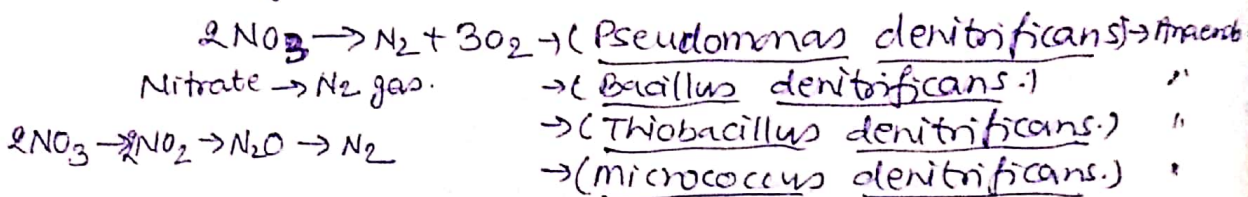 2NO3 → N2 + 3O2 → (Pseudomonas denitrificans) → Anaerob
Nitrate → N2 gas. → (Bacillus denitrificans.) "
→ (Thiobacillus denitrificans.) "
2NO3 → 2NO2 → N2O → N2
→ (micrococcus denitrificans.) "